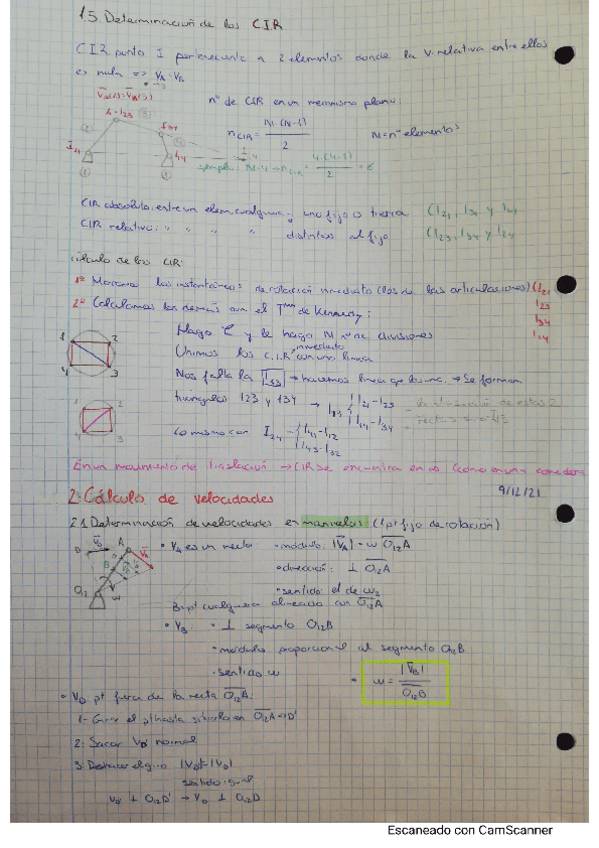 1.5. Determinación de los CIR
CIR punto I perteneciente a 2 elementos donde la v. relativa entre ellos
es nula => VA = VB
nº de CIR en un mecanismo plano:
nCIR = N·(N-1)/2 N = nº elementos
ejemplo: N=4 → nCIR = 4·(4-1)/2 = 6
CIR absoluto: entre un elem. cualquiera y uno fijo o tierra (I21, I31 y I41
CIR relativo: " " " " distintos al fijo (I23, I34 y I24
Cálculo de los CIR:
1º Marcamos los instantáneos de rotación inmediato (los de las articulaciones) (I21
I23
I34
I14
2º Calculamos los demás con el Tma de Kennedy:
Hago C y le hago N nº de divisiones
Unimos los C.I.R inmediato con una línea
Nos falta la I13 → hacemos línea que los una. → Se forman
triángulos 123 y 134 → I13 { I21 - I23
I14 - I34
Lo mismo con I24 { I41 - I12
I43 - I32
1 2
4 3
1 2
4 3
En un movimiento de traslación → CIR se encuentra en ∞ (como en una corredera
9/12/21
2. Cálculo de velocidades
2.1. Determinación de velocidades en manivelas (1 pt fijo de rotación)
• VA es un vector • módulo: |VA| = w O12A
• dirección: ⊥ O12A
• sentido el de w2
B: pt cualquiera alineado con O12A
• VB: • ⊥ segmento O12B
• módulo proporcional al segmento O12B
• sentido w
• w = |VB| / O12B
• VD pt fuera de la recta O12A:
1- Giro el pt hasta situarlo en O12A => D'
2. Sacar VD' normal
3. Deshacer el giro |VD'| = |VD|
sentido igual
VD' ⊥ O12D' → VD ⊥ O12D
Escaneado con CamScanner